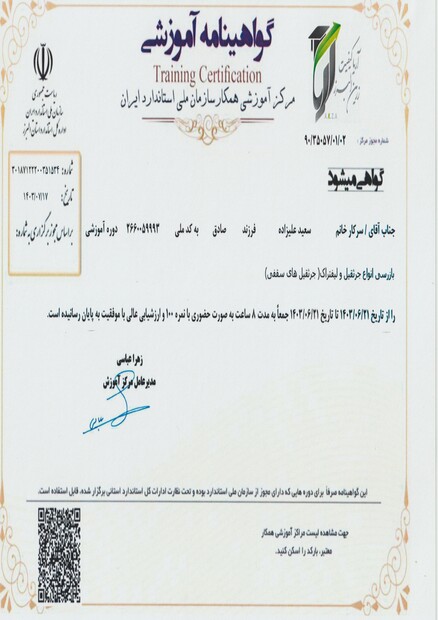 گواهینامه آموزشی
Training Certification
مرکز آموزشی همکار سازمان ملی استاندارد ایران
ریاست جمهوری
سازمان ملی استاندارد ایران
شماره مجوز مرکز: ۹۰/۳۵۰۵۷/۰۱/۰۲
شماره: ۳۰۱۸۷۱۲۲۲۰۰۳۵۱۵۳۴
تاریخ: ۱۴۰۳/۰۷/۱۷
براساس مجوز برگزاری به شماره:
گواهی میشود
جناب آقای / سرکار خانم سعید علیزاده فرزند صادق به کد ملی ۲۶۶۰۰۵۹۹۹۳ دوره آموزشی
بازرسی انواع جرثقیل و لیفتراک( جرثقیل های سقفی)
را از تاریخ ۱۴۰۳/۰۶/۲۱ تا تاریخ ۱۴۰۳/۰۶/۲۱ جمعاً به مدت ۸ ساعت به صورت حضوری با نمره ۱۰۰ و ارزشیابی عالی با موفقیت به پایان رسانیده است.
زهرا عباسی
مدیرعامل مرکز آموزش
این گواهینامه صرفاً برای دوره هایی که دارای مجوز از سازمان ملی استاندارد بوده و تحت نظارت ادارات کل استاندارد استانی برگزار شده، قابل استفاده است.
جهت مشاهده لیست مراکز آموزشی همکار
معتبر، بارکد را اسکن کنید.